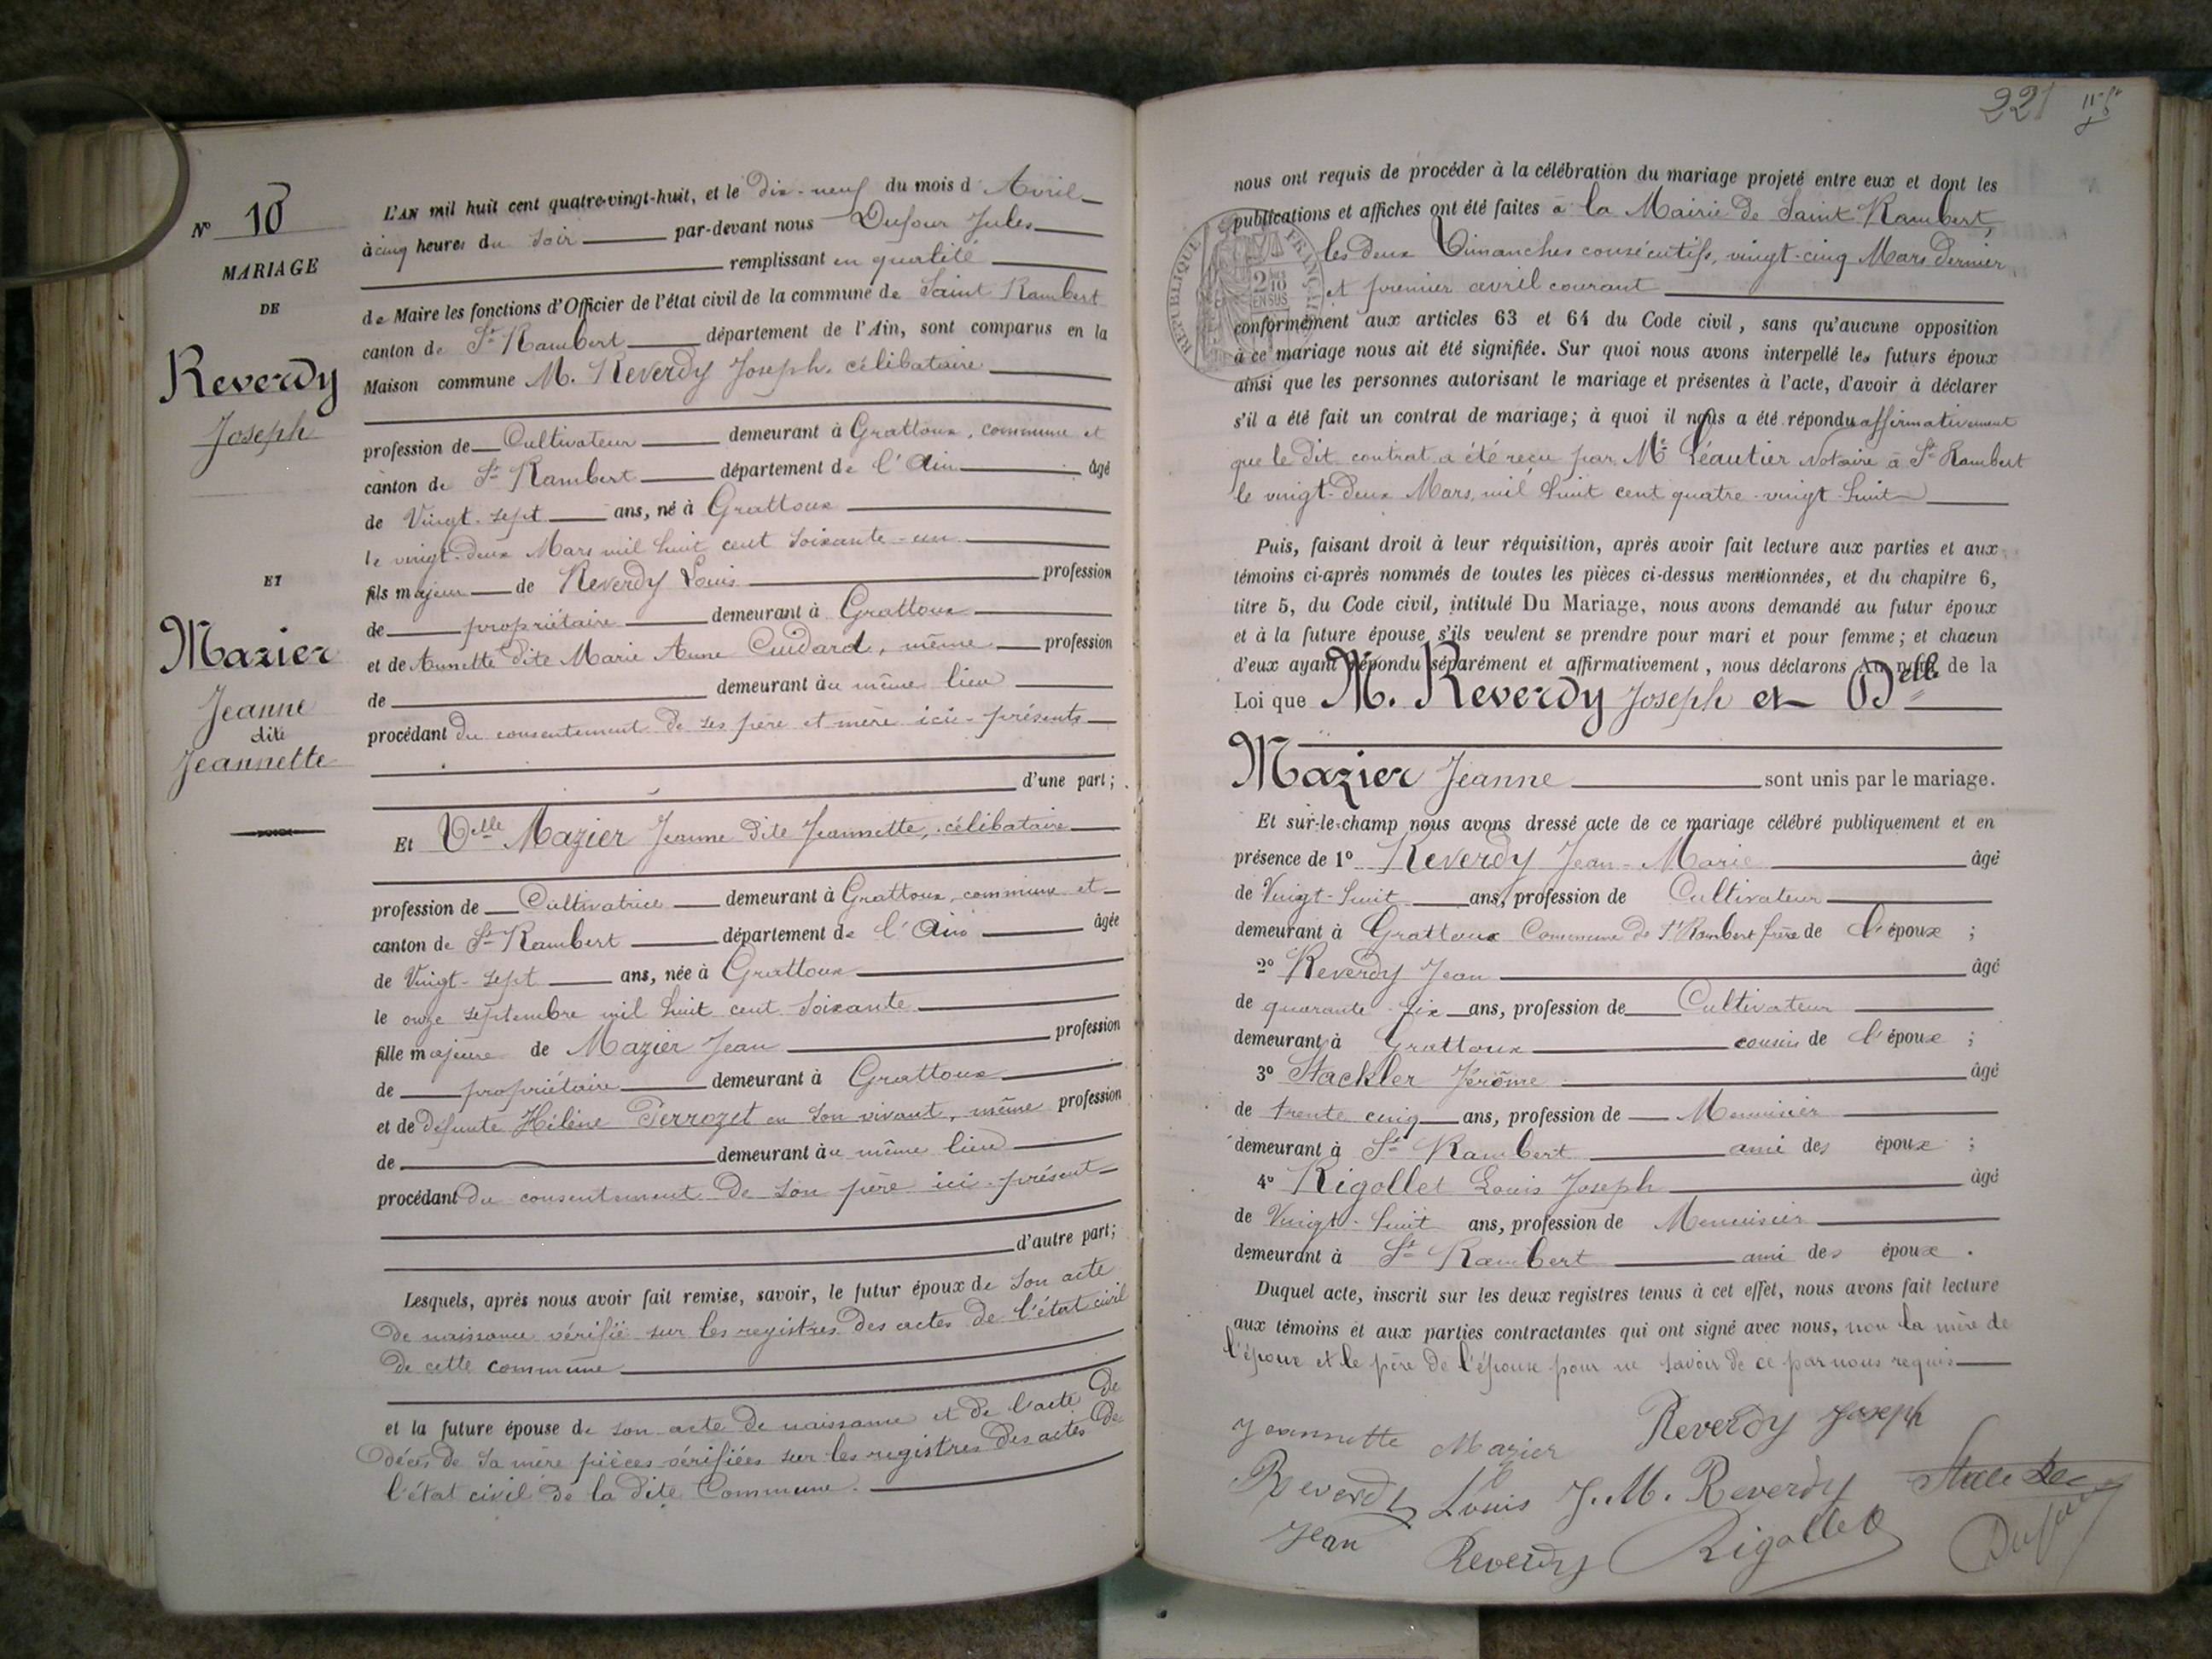 N° 10
MARIAGE
DE
Reverdy
Joseph
ET
Mazier
Jeanne
dite
Jeannette
L'AN mil huit cent quatre-vingt-huit, et le dix-neuf du mois d'Avril
à cinq heures du soir par-devant nous Dufour Jules
remplissant en qualité
de Maire les fonctions d'Officier de l'état civil de la commune de Saint Rambert
canton de St Rambert département de l'Ain, sont comparus en la
Maison commune M. Reverdy Joseph, célibataire
profession de Cultivateur demeurant à Grattoux, commune et
canton de St Rambert département de l'Ain âgé
de Vingt-sept ans, né à Grattoux
le vingt-deux Mars mil huit cent soixante-un
fils majeur de Reverdy Louis profession
de propriétaire demeurant à Grattoux
et de Annette dite Marie Anne Cuidard, même profession
de demeurant au même lieu
procédant du consentement de ses père et mère ici-présents
d'une part;
Et Delle Mazier Jeanne dite Jeannette, célibataire
profession de Cultivatrice demeurant à Grattoux, commune et
canton de St Rambert département de l'Ain âgée
de Vingt-sept ans, née à Grattoux
le onze septembre mil huit cent soixante
fille majeure de Mazier Jean profession
de propriétaire demeurant à Grattoux
et de défunte Hélène Perrozet en son vivant, même profession
de demeurant au même lieu
procédant du consentement de son père ici-présent
d'autre part;
Lesquels, après nous avoir fait remise, savoir, le futur époux de son acte
de naissance vérifié sur les registres des actes de l'état civil
de cette commune
et la future épouse de son acte de naissance et de l'acte de
décès de sa mère pièces vérifiées sur les registres des actes de
l'état civil de la dite Commune.
221
nous ont requis de procéder à la célébration du mariage projeté entre eux et dont les
publications et affiches ont été faites à la Mairie de Saint Rambert,
les deux Dimanches consécutifs, vingt-cinq Mars dernier,
et premier avril courant
RÉPUBLIQUE FRANÇAISE
2/10 EN SUS
conformément aux articles 63 et 64 du Code civil, sans qu'aucune opposition
à ce mariage nous ait été signifiée. Sur quoi nous avons interpellé les futurs époux
ainsi que les personnes autorisant le mariage et présentes à l'acte, d'avoir à déclarer
s'il a été fait un contrat de mariage; à quoi il nous a été répondu affirmativement
que le dit contrat a été reçu par Me Léautier Notaire à St Rambert
le vingt-deux Mars, mil huit cent quatre-vingt-huit
Puis, faisant droit à leur réquisition, après avoir fait lecture aux parties et aux
témoins ci-après nommés de toutes les pièces ci-dessus mentionnées, et du chapitre 6,
titre 5, du Code civil, intitulé Du Mariage, nous avons demandé au futur époux
et à la future épouse s'ils veulent se prendre pour mari et pour femme; et chacun
d'eux ayant répondu séparément et affirmativement, nous déclarons Au nom de la
Loi que M. Reverdy Joseph et Delle
Mazier Jeanne sont unis par le mariage.
Et sur-le-champ nous avons dressé acte de ce mariage célébré publiquement et en
présence de 1° Reverdy Jean-Marie âgé
de Vingt-huit ans, profession de Cultivateur
demeurant à Grattoux Commune de St Rambert frère de l'époux ;
2° Reverdy Jean âgé
de quarante six ans, profession de Cultivateur
demeurant à Grattoux cousin de l'époux ;
3° Stackler Jérôme âgé
de trente cinq ans, profession de Menuisier
demeurant à St Rambert ami des époux ;
4° Rigollet Louis Joseph âgé
de Vingt-huit ans, profession de Menuisier
demeurant à St Rambert ami des époux .
Duquel acte, inscrit sur les deux registres tenus à cet effet, nous avons fait lecture
aux témoins et aux parties contractantes qui ont signé avec nous, non la mère de
l'époux et le père de l'épouse pour ne savoir de ce par nous requis
Jeannette Mazier Reverdy Joseph
Reverdy Louis J. M. Reverdy
Jean Reverdy Rigollet Dufour